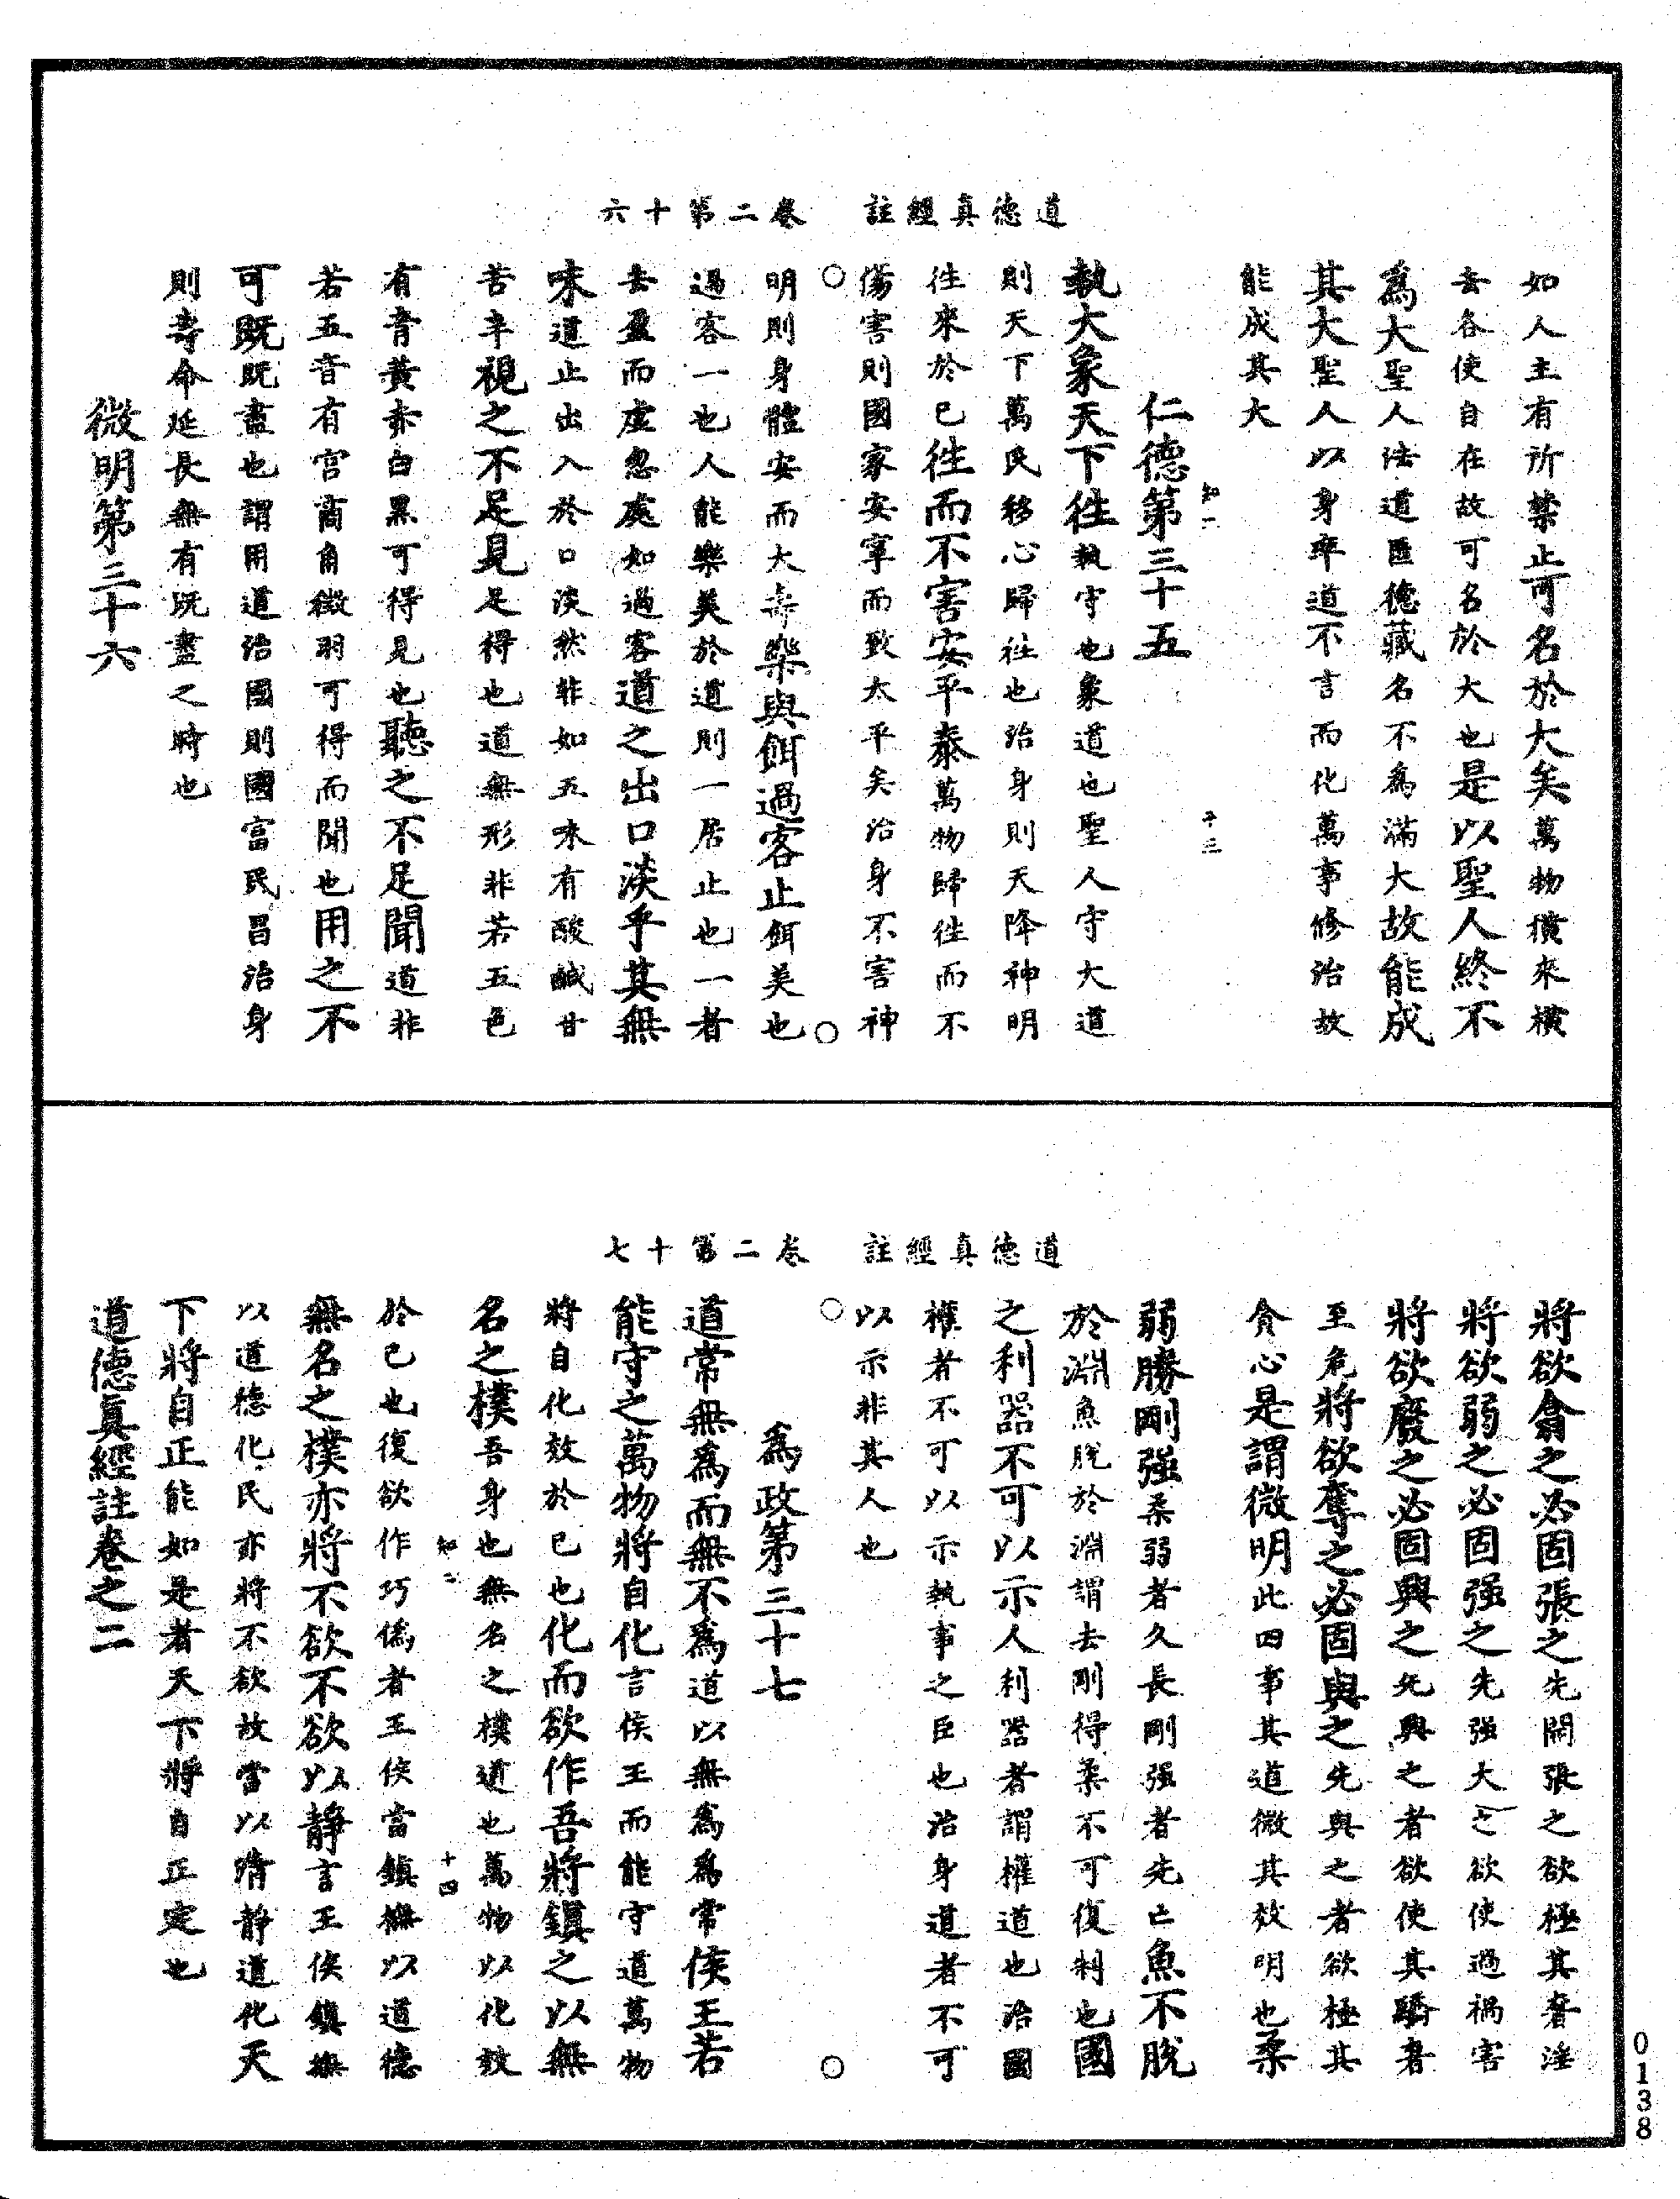 道德真經註　卷二第十六
如人主有所禁止可名於大矣萬物橫來橫
去各使自在故可名於大也是以聖人終不
爲大聖人法道匿德藏名不爲滿大故能成
其大聖人以身率道不言而化萬事修治故
能成其大
知一　十三
仁德第三十五
執大象天下往執守也象道也聖人守大道
則天下萬民移心歸往也治身則天降神明
往來於已往而不害安平泰萬物歸往而不
傷害則國家安寧而致太平矣治身不害神
明則身體安而大壽樂與餌過客止餌美也
過客一也人能樂美於道則一居止也一者
去盈而虛忽處如過客道之出口淡乎其無
味道止出入於口淡然非如五味有酸鹹甘
苦辛視之不足見足得也道無形非若五色
有青黃赤白黑可得見也聽之不足聞道非
若五音有宮商角徵羽可得而聞也用之不
可既既盡也謂用道治國則國富民昌治身
則壽命延長無有既盡之時也
微明第三十六
道德真經註　卷二第十七
將欲翕之必固張之先開張之欲極其奢淫
將欲弱之必固强之先强大之欲使過禍害
將欲廢之必固興之先興之者欲使其驕奢
至危將欲奪之必固與之先與之者欲極其
貪心是謂微明此四事其道微其效明也柔
弱勝剛强柔弱者久長剛强者先亡魚不脫
於淵魚脫於淵謂去剛得柔不可復制也國
之利器不可以示人利器者謂權道也治國
權者不可以示執事之臣也治身道者不可
以示非其人也
爲政第三十七
道常無爲而無不爲道以無爲爲常侯王若
能守之萬物將自化言侯王而能守道萬物
將自化效於已也化而欲作吾將鎮之以無
名之樸吾身也無名之樸道也萬物以化效
知二　十四
於已也復欲作巧僞者王侯當鎮撫以道德
無名之樸亦將不欲不欲以靜言王侯鎮撫
以道德化民亦將不欲故當以清靜道化天
下將自正能如是者天下將自正定也
道德真經註卷之二
0138